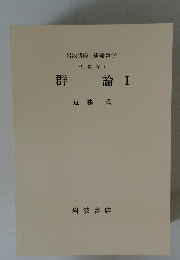 岩波講座 基礎数学
群 論 I
近藤 武
岩波書店